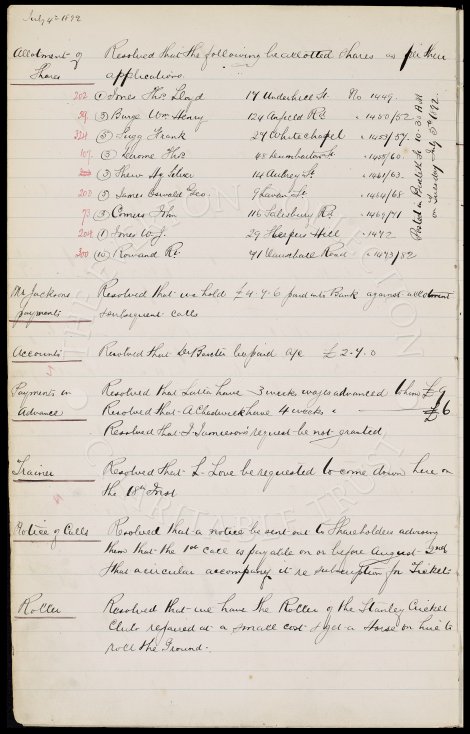 July 4th 1892
Allotment of Shares
Resolved that the following be allotted shares as per their
applications
202 (1) Jones Thos Lloyd 17 Underhill St. No 1449.
29 (3) Burge Wm Henry 124 Anfield Rd. " 1450/52
324 (5) Jugg Frank 27 Whitechapel " 1453/57
107 (3) Jerome Thos 48 Dumbarton St " 1458/60
(3) 114 Aubrey St " 1461/63
200 (5) James Oswald Geo. 9 St " 1464/68
73 (3) Comins John 116 Salisbury Rd " 1469/71
204 (1) Jones W. J. 29 Hill " 1472
300 (10) Rowland Rt. 71 Vauxhall Road " 1473/82
Posted in at 10.30 AM
on Tuesday July 5th 1892.
Mr Jacksons payments
Resolved that we hold £4-7-6 paid into Bank against allotment
& subsequent calls
Accounts
Resolved that Dr Baxter be paid a/c £2-7-0
Payments in Advance
Resolved that Latta have 3 weeks wages advanced to him £9
Resolved that A Chadwick have 4 weeks " £6
Resolved that J Jamieson's request be not granted
Trainer
Resolved that L. Love be requested to come down here on
the 18th Inst
Notice of Calls
Resolved that a notice be sent out to Shareholders advising
them that the 1st call is payable on or before August 2nd
& that a circular accompany it re subscription for Tickets
Roller
Resolved that we have the Roller of the Stanley Cricket
Club repaired at a small cost & get a Horse on hire to
roll the Ground.
EVERTON COLLECTION
CHARITABLE TRUST